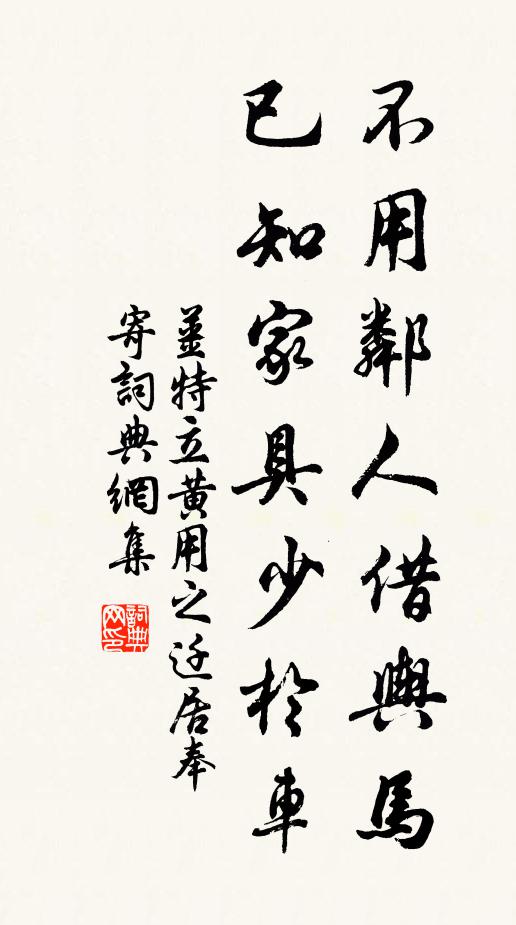 不用鄰人借輿馬
已知家具少於車
姜特立黃用之迁居奉
寄詞典網集
詞典网印